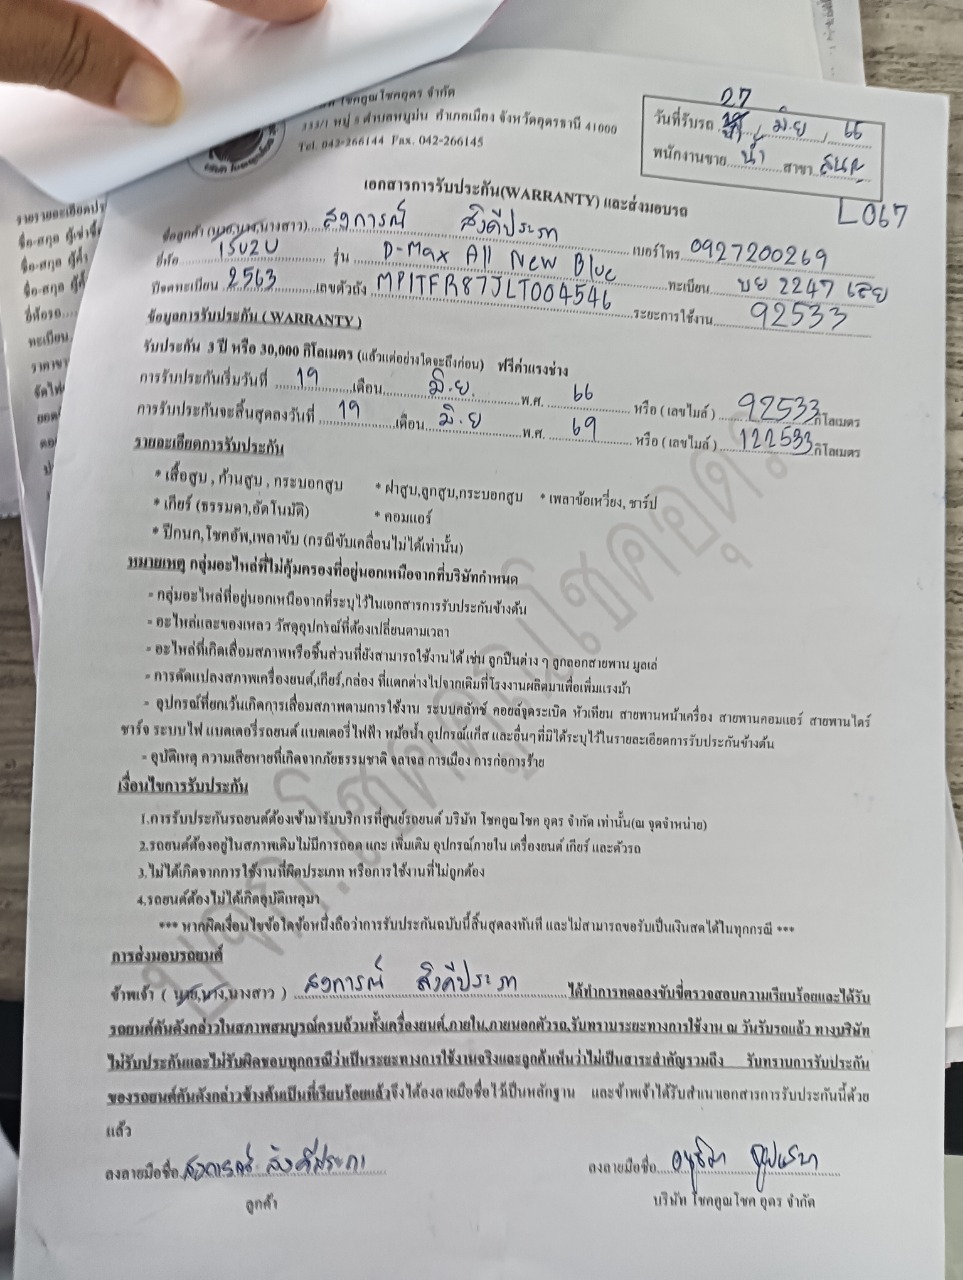 โชคคูณโชคอุดร จำกัด
333/1 หมู่ 8 ตำบลหมูม่น อำเภอเมือง จังหวัดอุดรธานี 41000
Tel. 042-266144 Fax. 042-266145
วันที่รับรถ 27 มิ.ย 66
พนักงานขาย น้ำ สาขา
L067
เอกสารการรับประกัน(WARRANTY) และส่งมอบรถ
ชื่อลูกค้า (นาย,นาง,นางสาว) สงการณ์ สิงคีประภา เบอร์โทร 0927200269
ยี่ห้อ ISUZU รุ่น D-Max All New Blue ทะเบียน บย 2247 เลย
ปีจดทะเบียน 2563 เลขตัวถัง MP1TFR87JLT004546 ระยะการใช้งาน 92533
ข้อมูลการรับประกัน ( WARRANTY )
รับประกัน 3 ปี หรือ 30,000 กิโลเมตร (แล้วแต่อย่างใดจะถึงก่อน) ฟรีค่าแรงช่าง
การรับประกันเริ่มวันที่ 19 เดือน มิ.ย. พ.ศ. 66 หรือ ( เลขไมล์ ) 92533 กิโลเมตร
การรับประกันจะสิ้นสุดลงวันที่ 19 เดือน มิ.ย พ.ศ. 69 หรือ ( เลขไมล์ ) 122533 กิโลเมตร
รายละเอียดการรับประกัน
* เสื้อสูบ , ก้านสูบ , กระบอกสูบ * ฝาสูบ,ลูกสูบ,กระบอกสูบ * เพลาข้อเหวี่ยง, ชาร์ป
* เกียร์ (ธรรมดา,อัตโนมัติ) * คอมแอร์
* ปีกนก,โชคอัพ,เพลาขับ (กรณีขับเคลื่อนไม่ได้เท่านั้น)
หมายเหตุ กลุ่มอะไหล่ที่ไม่คุ้มครองที่อยู่นอกเหนือจากที่บริษัทกำหนด
- กลุ่มอะไหล่ที่อยู่นอกเหนือจากที่ระบุไว้ในเอกสารการรับประกันข้างต้น
- อะไหล่และของเหลว วัสดุอุปกรณ์ที่ต้องเปลี่ยนตามเวลา
- อะไหล่ที่เกิดเสื่อมสภาพหรือชิ้นส่วนที่ยังสามารถใช้งานได้ เช่น ลูกปืนต่าง ๆ ลูกลอกสายพาน มูลเล่
- การดัดแปลงสภาพเครื่องยนต์,เกียร์,กล่อง ที่แตกต่างไปจากเดิมที่โรงงานผลิตมาเพื่อเพิ่มแรงม้า
- อุปกรณ์ที่ยกเว้นเกิดการเสื่อมสภาพตามการใช้งาน ระบบคลัทช์ คอยล์จุดระเบิด หัวเทียน สายพานหน้าเครื่อง สายพานคอมแอร์ สายพานไดร์
ชาร์จ ระบบไฟ แบตเตอรี่รถยนต์ แบตเตอรี่ไฟฟ้า หม้อน้ำ อุปกรณ์แก๊ส และอื่นๆที่มิได้ระบุไว้ในรายละเอียดการรับประกันข้างต้น
- อุบัติเหตุ ความเสียหายที่เกิดจากภัยธรรมชาติ จลาจล การเมือง การก่อการร้าย
เงื่อนไขการรับประกัน
1.การรับประกันรถยนต์ต้องเข้ามารับบริการที่ศูนย์รถยนต์ บริษัท โชคคูณโชค อุดร จำกัด เท่านั้น(ณ จุดจำหน่าย)
2.รถยนต์ต้องอยู่ในสภาพเดิมไม่มีการถอด แกะ เพิ่มเติม อุปกรณ์ภายใน เครื่องยนต์ เกียร์ และตัวรถ
3.ไม่ได้เกิดจากการใช้งานที่ผิดประเภท หรือการใช้งานที่ไม่ถูกต้อง
4.รถยนต์ต้องไม่ได้เกิดอุบัติเหตุมา
*** หากผิดเงื่อนไขข้อใดข้อหนึ่งถือว่าการรับประกันฉบับนี้สิ้นสุดลงทันที และไม่สามารถขอรับเป็นเงินสดได้ในทุกกรณี ***
การส่งมอบรถยนต์
ข้าพเจ้า ( นาย,นาง,นางสาว ) สงการณ์ สิงคีประภา ได้ทำการทดลองขับขี่ตรวจสอบความเรียบร้อยและได้รับ
รถยนต์คันดังกล่าวในสภาพสมบูรณ์ครบถ้วนทั้งเครื่องยนต์,ภายใน,ภายนอกตัวรถ,รับทราบระยะทางการใช้งาน ณ วันรับรถแล้ว ทางบริษัท
ไม่รับประกันและไม่รับผิดชอบทุกกรณีว่าเป็นระยะทางการใช้งานจริงและลูกค้าเห็นว่าไม่เป็นสาระสำคัญรวมถึง รับทราบการรับประกัน
ของรถยนต์คันดังกล่าวข้างต้นเป็นที่เรียบร้อยแล้วจึงได้ลงลายมือชื่อไว้เป็นหลักฐาน และข้าพเจ้าได้รับสำเนาเอกสารการรับประกันนี้ด้วย
แล้ว
ลงลายมือชื่อ สงการณ์ สิงคีประภา ลงลายมือชื่อ
ลูกค้า บริษัท โชคคูณโชค อุดร จำกัด